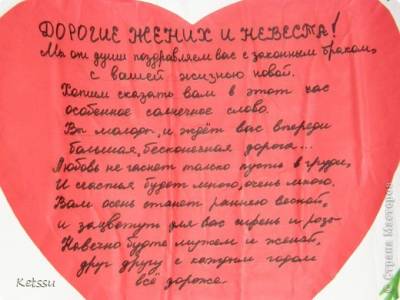 ДОРОГИЕ ЖЕНИХ И НЕВЕСТА!
Мы от души поздравляем вас с законным браком,
с вашей жизнью новой.
Хотим сказать вам в этот час
особенное солнечное слово.
Вы молоды, и ждёт вас впереди
большая, бесконечная дорога...
Любовь не гаснет только пусть в груди,
И счастья будет много, очень много.
Вам осень станет раннею весной,
и зацветут для вас сирень и розы
Навечно будте мужем и женой,
друг другу с каждым годом
всё дороже.
Ketssu
© Страна Мастеров